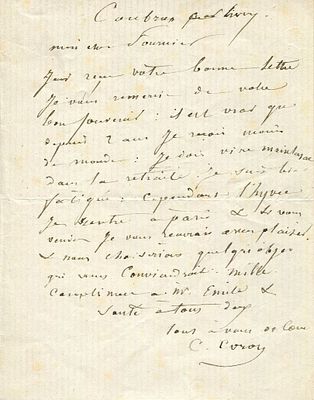 Coubron par Livry.
mon cher Fournier
J'ai reçu votre bonne lettre
Je vous remercie de votre
bon souvenir : il est vrai que
depuis 2 ans je vois moins
de monde : je dois vivre maintenant
dans la retraite. je suis bien
fatigué : cependant l'hyver
je rentre à paris & si vous
venez Je vous reverrai avec plaisir
& nous choisirions quelqu'objet
qui vous Conviendrait. Mille
Compliments à Mr Emile &
Santé à tous deux
tout à vous de Coeur
C. Corot